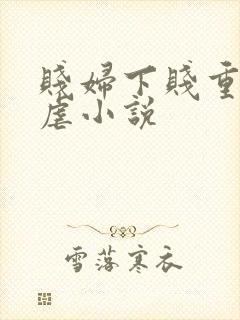 賤婦下賤重
虐小説
雪落寒衣